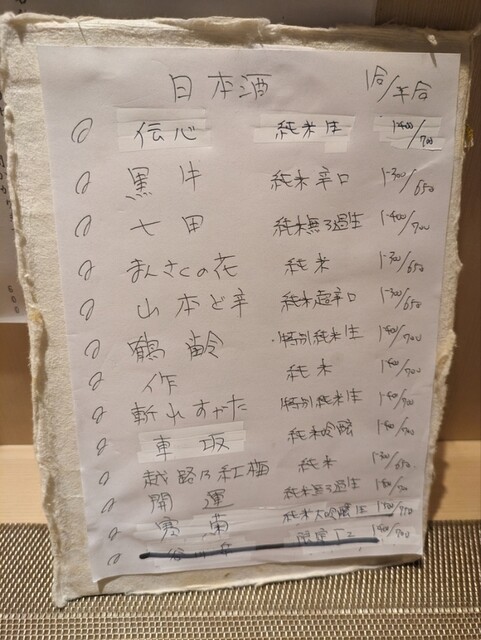 日本酒 1合/半合
伝心 純米生 1400/700
黒牛 純米辛口 1300/650
七田 純米無ろ過生 1400/700
まんさくの花 純米 1300/650
山本ど辛 純米超辛口 1300/650
鶴齢 特別純米生 1400/700
作 純米 1400/700
斬れすがた 特別純米生 1400/700
車坂 純米吟醸 1400/700
越路乃紅梅 純米 1300/650
開運 純米無ろ過生 1400/700
寒菊 純米大吟醸生
1400/700